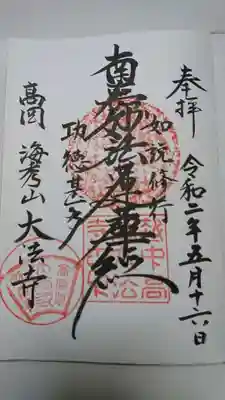 奉拝
令和二年五月十六日
如説修行
南無妙法蓮華経
功徳甚多
高岡 海秀山 大法寺